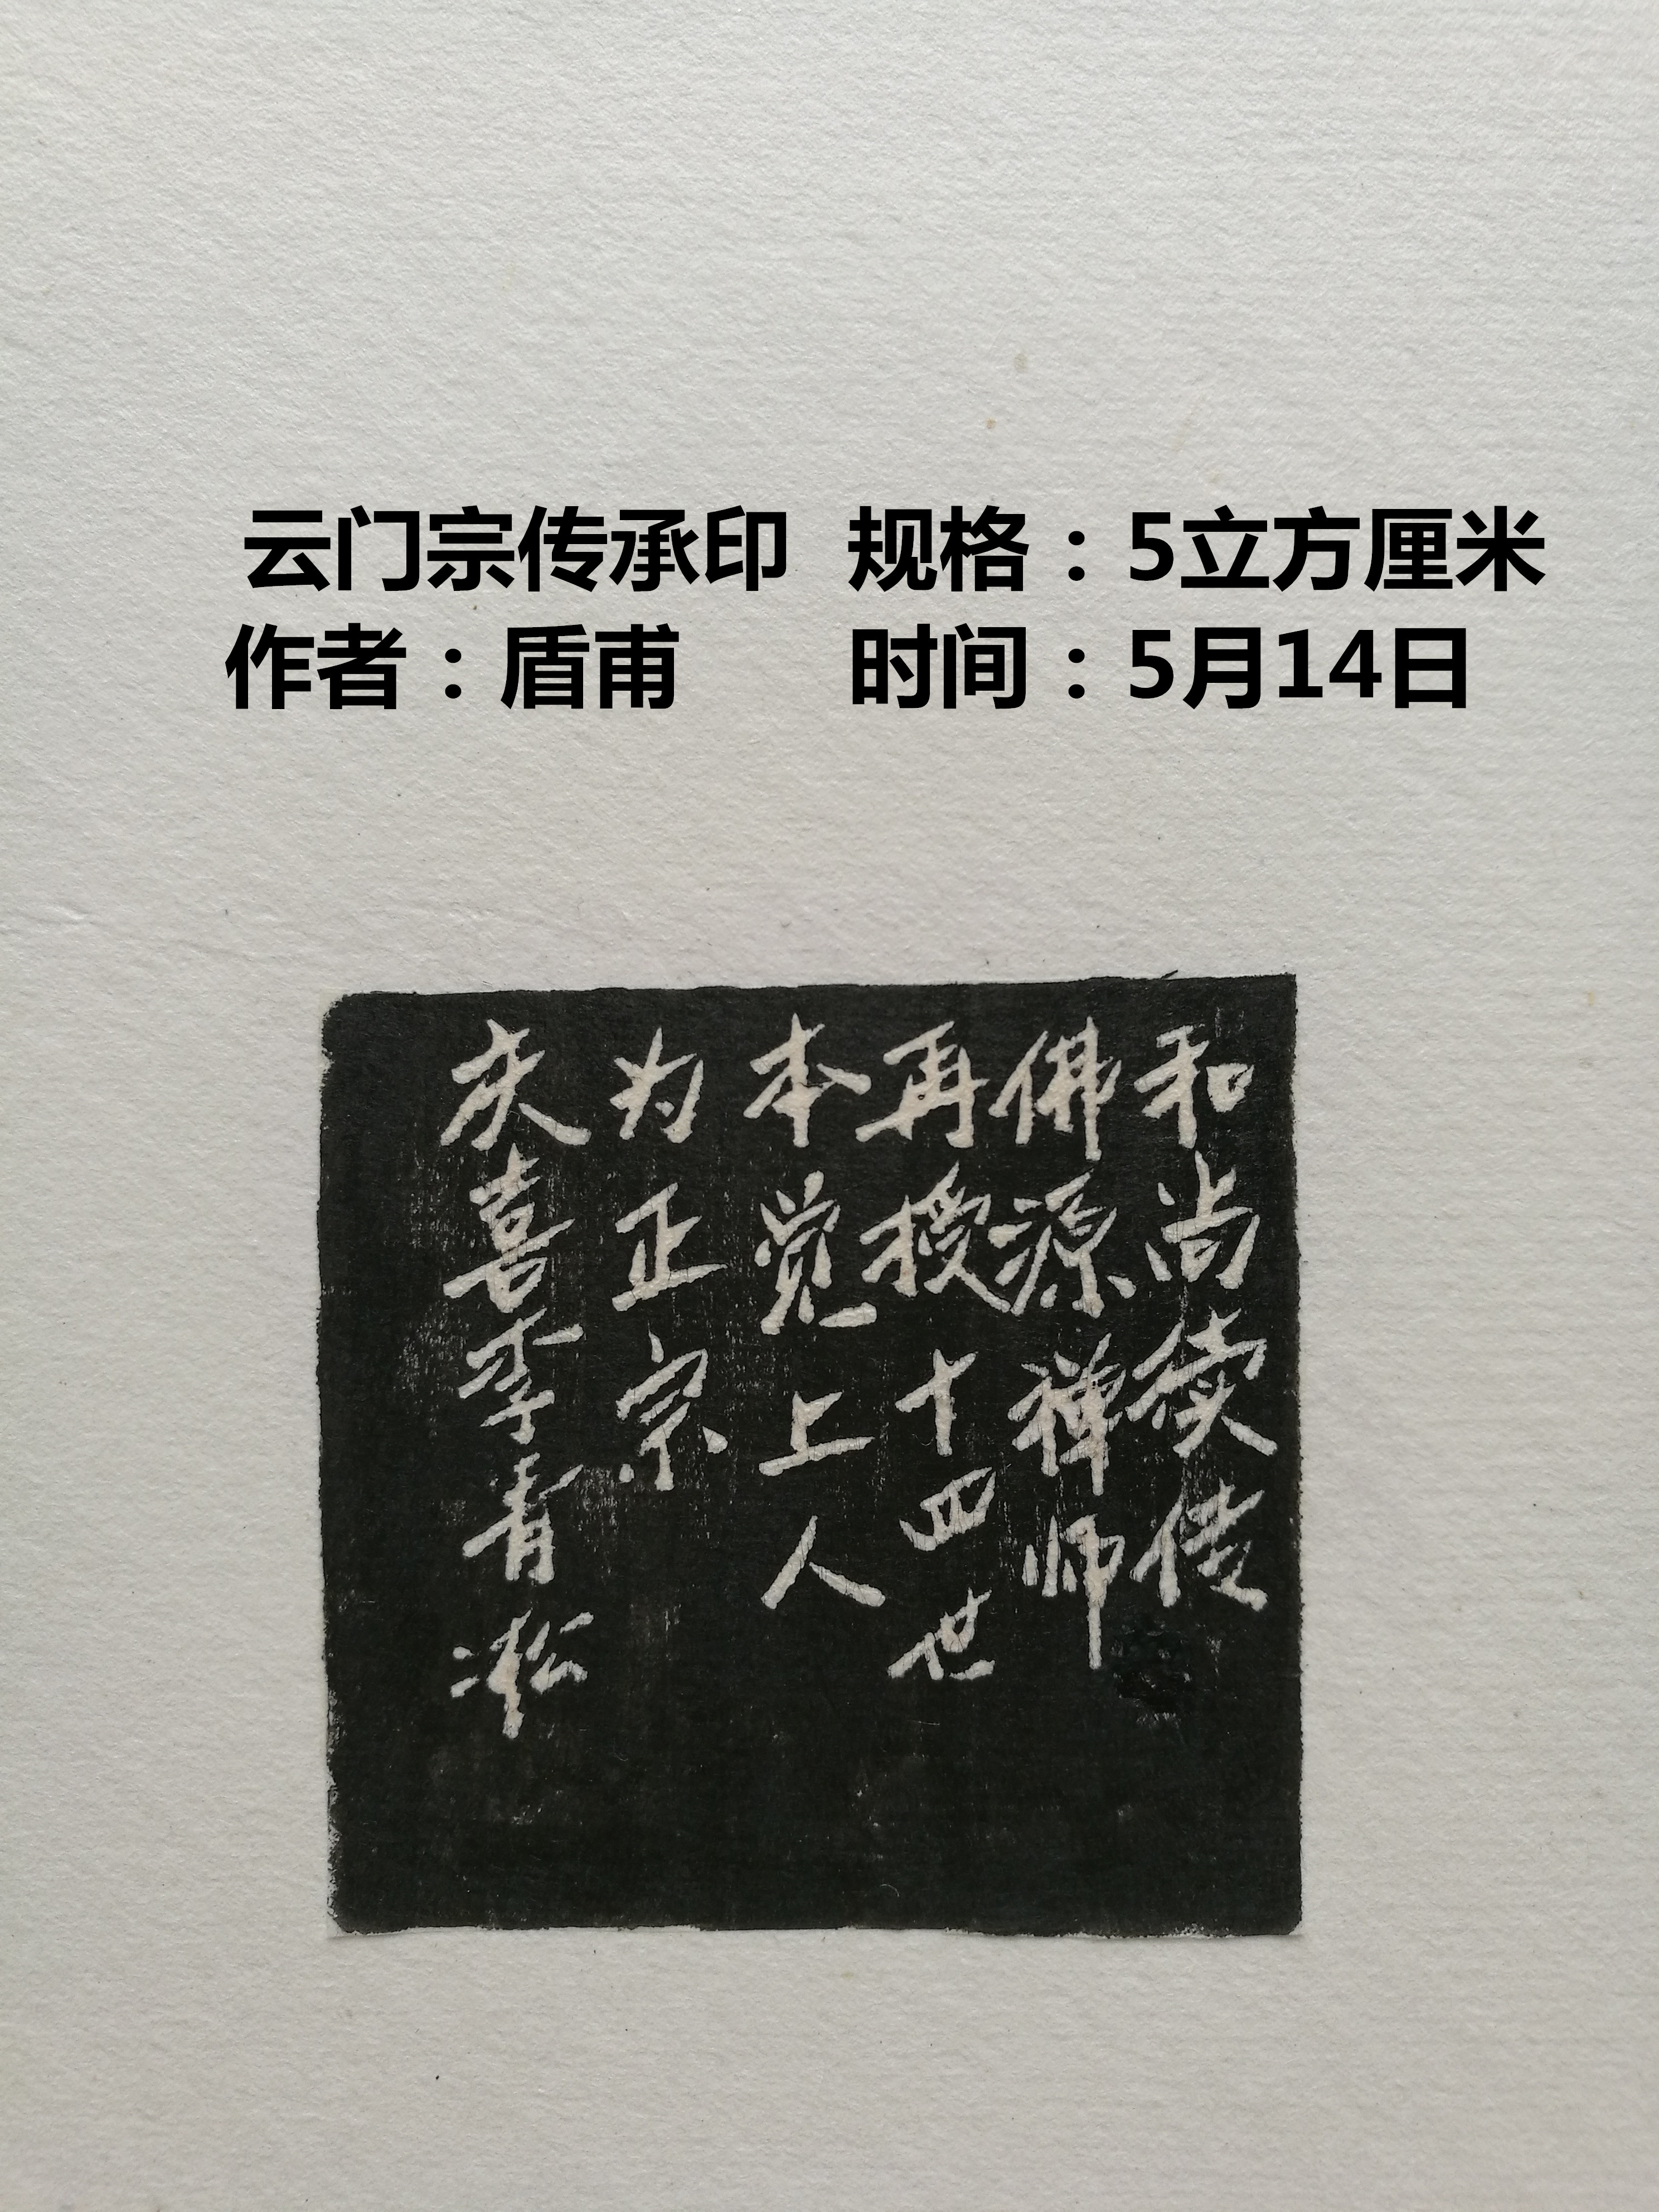 云门宗传承印 规格：5立方厘米
作者：盾甫 时间：5月14日
和尚续传
佛源禅师
再授十四世
本觉上人
为正宗
庆喜李青凇